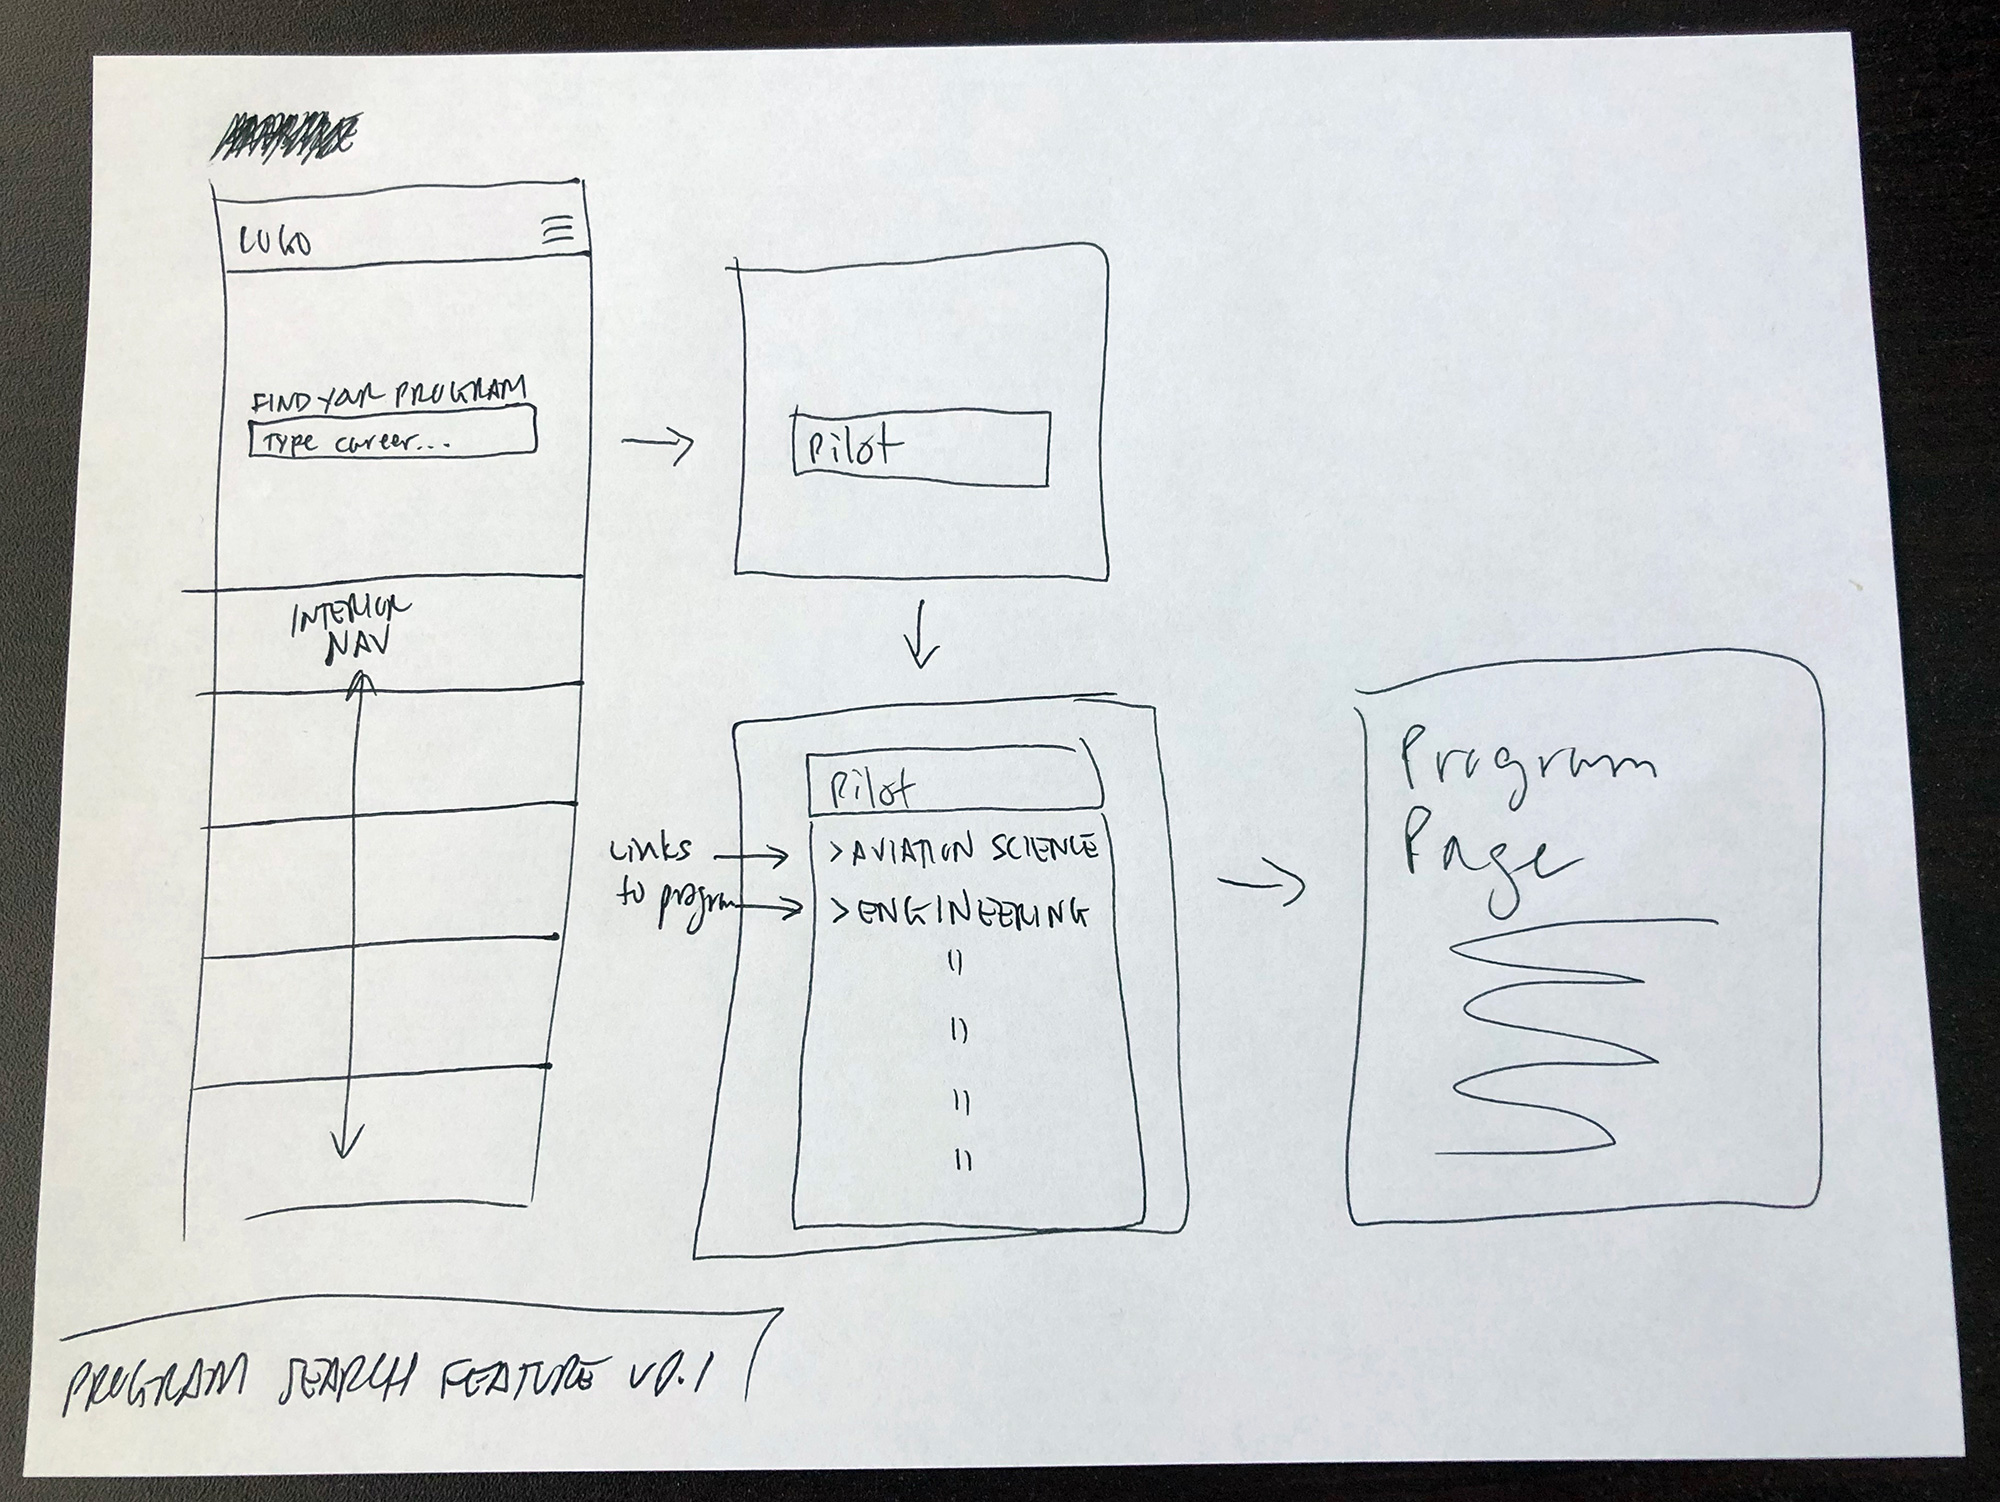 LOGO
FIND YOUR PROGRAM
Type career...
INTERIOR
NAV
Pilot
Pilot
Links
to program
> AVIATION SCIENCE
> ENGINEERING
"
"
"
"
Program
Page
PROGRAM SEARCH FEATURE v0.1